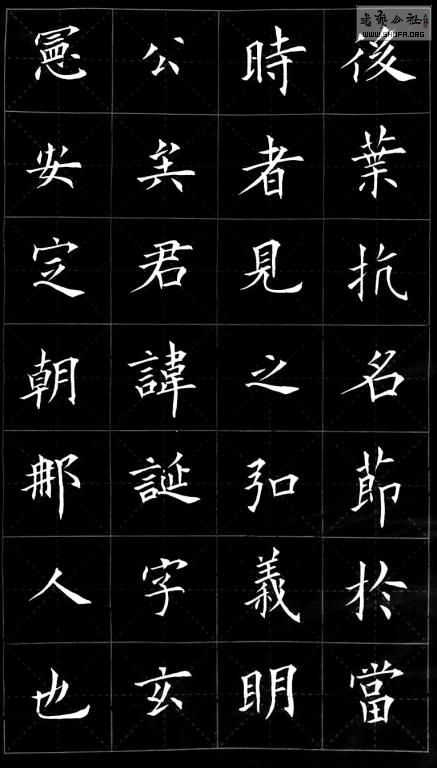 後葉抗名節於當
時者見之弘義明
公矣君諱誕字玄
憲安定朝那人也
書法公社
WWW.SHUFA.ORG